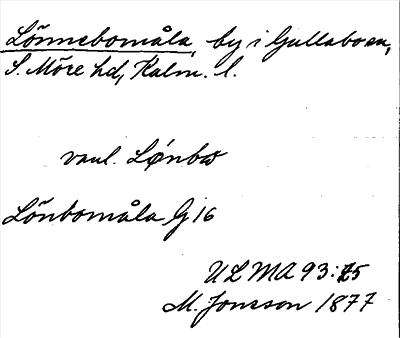 Lönnebomåla, by i Gullabo sn,
S. Möre hd, Kalm. l.
vanl. Lǿnbo
Lönbomåla G 16
ULMA 93:75
M. Jonsson 1877